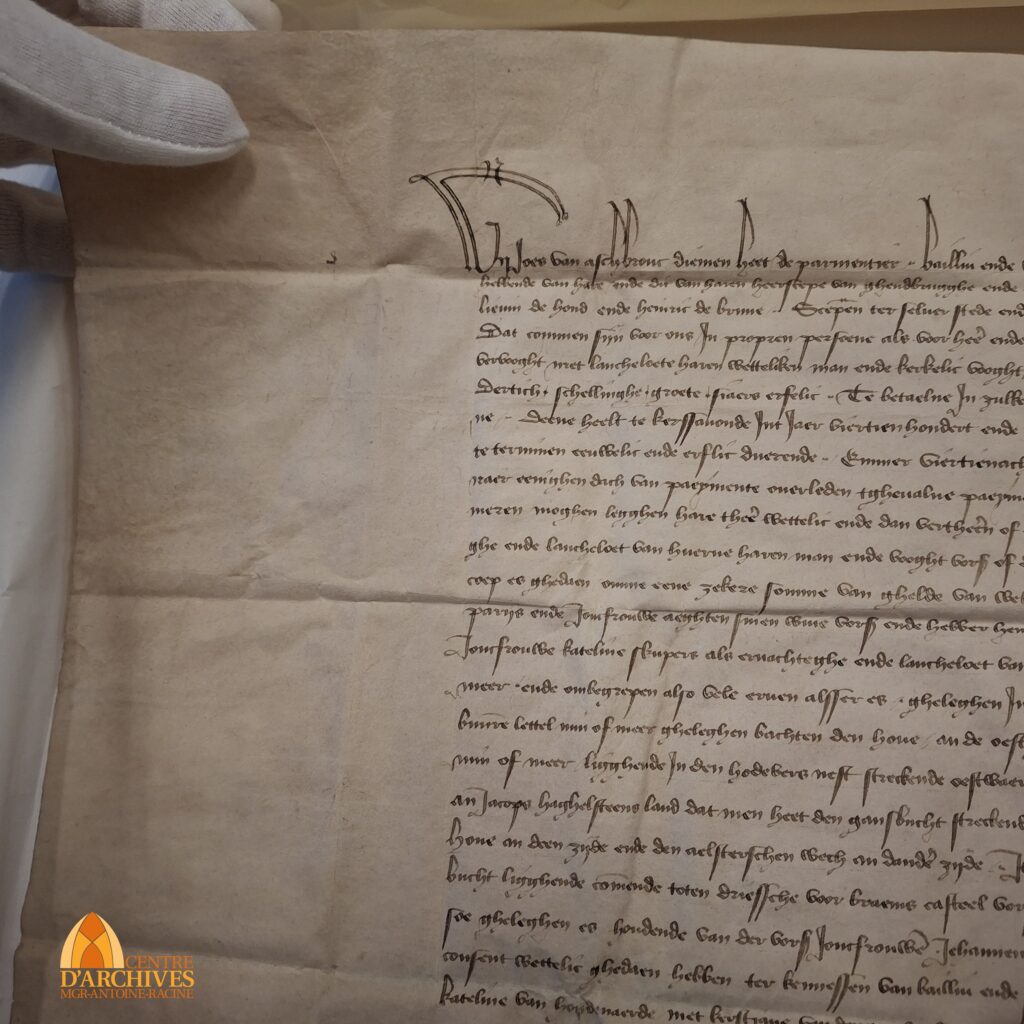 Wij Joes van aschbrouc diemen heet de parmentier . bailliu ende
hellende van hare ende dit van haren heerscepe van ghendbrugghe ende
lieuin de hond ende heinric de brune . Scepen ter seluer stede ende
Dat commen sijn voor ons In propren persoene als voor heere ende
vervooght met lancheloete haren wetteliken man ende kerkelic vooght
Dertich . schellinghe . groete . siaers erfelic . Te betaelne In zulke
ne . deene heelt te kerssauonde Int Jaer viertien hondert ende
te terminen eeuwelic ende erflic duerende . Emmer viertienach
naer eenighen dach van paeymente ouerleden tghevalue paeym
meren moghen legghen hare theer wettelic ende dan vertheern of
ghe ende lancheloet van huerne haren man ende vooght vors of
coep es ghedaen omme eene zekere somme van ghelde van wet
parijs ende Joncfrouwe aeghten sinen wiue vors ende hebber hen
Joncfrouwe kateline scupers als eruachteghe ende lancheloet van
meer . ende ombegrepen also vele eruen alsser es . gheleghen In
buunre lettel min of meer gheleghen bachten den houe . an de oest
min of meer . ligghende In den hodevers nest streckende oestwaer
an Jacops haghelsteens land dat men heet den gansbucht streckende
houe an deen zijde ende den aelsterschen wech an dander zijde .
bucht ligghende comende toten driessche voor braems casteel vor
soe gheleghen es . houdende van der vors Joncfrouwen Jehannen
consent wettelic ghedaen hebben ter kennessen van bailliu ende
kateline van houdenaerde met kerstiane van
CENTRE
D'ARCHIVES
MGR-ANTOINE-RACINE